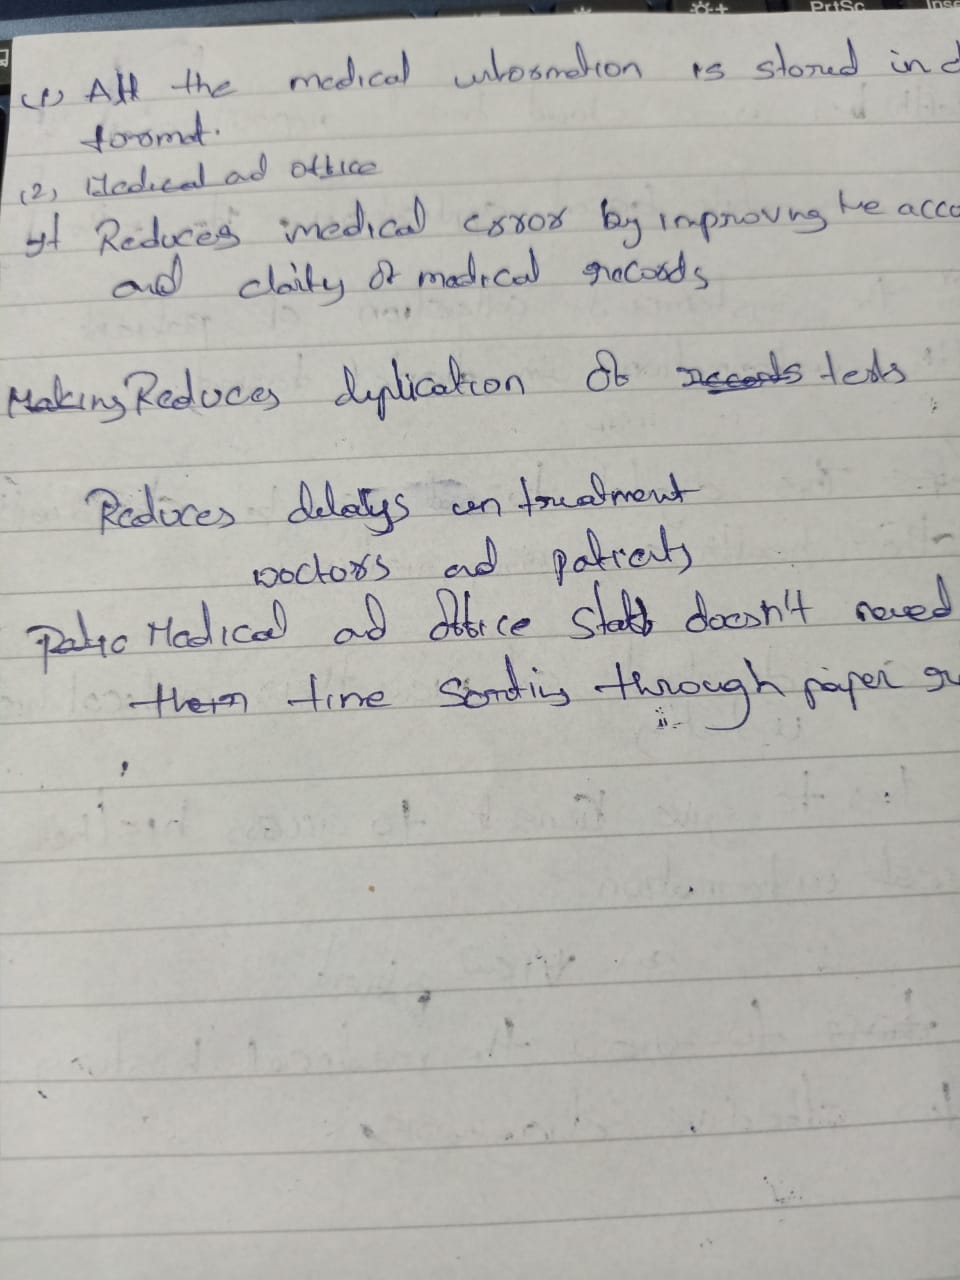 PrtSc
Inse
(1) All the medical information is stored in d
format.
(2) Medical ad office
Reduces medical error by improving the accu
and claity of medical records
Making Reduces duplication of records tests
Reduces delays in treatment
Doctors ad patients
Medical ad office staff doesn't need
time through paper